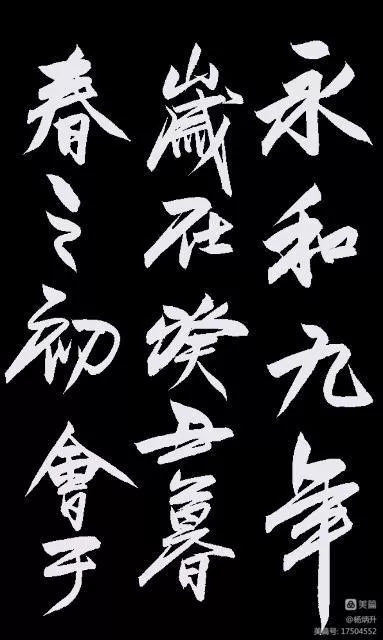 永和九年
歲在癸丑暮
春之初會于
美篇
@杨炳升
美篇号: 17504552